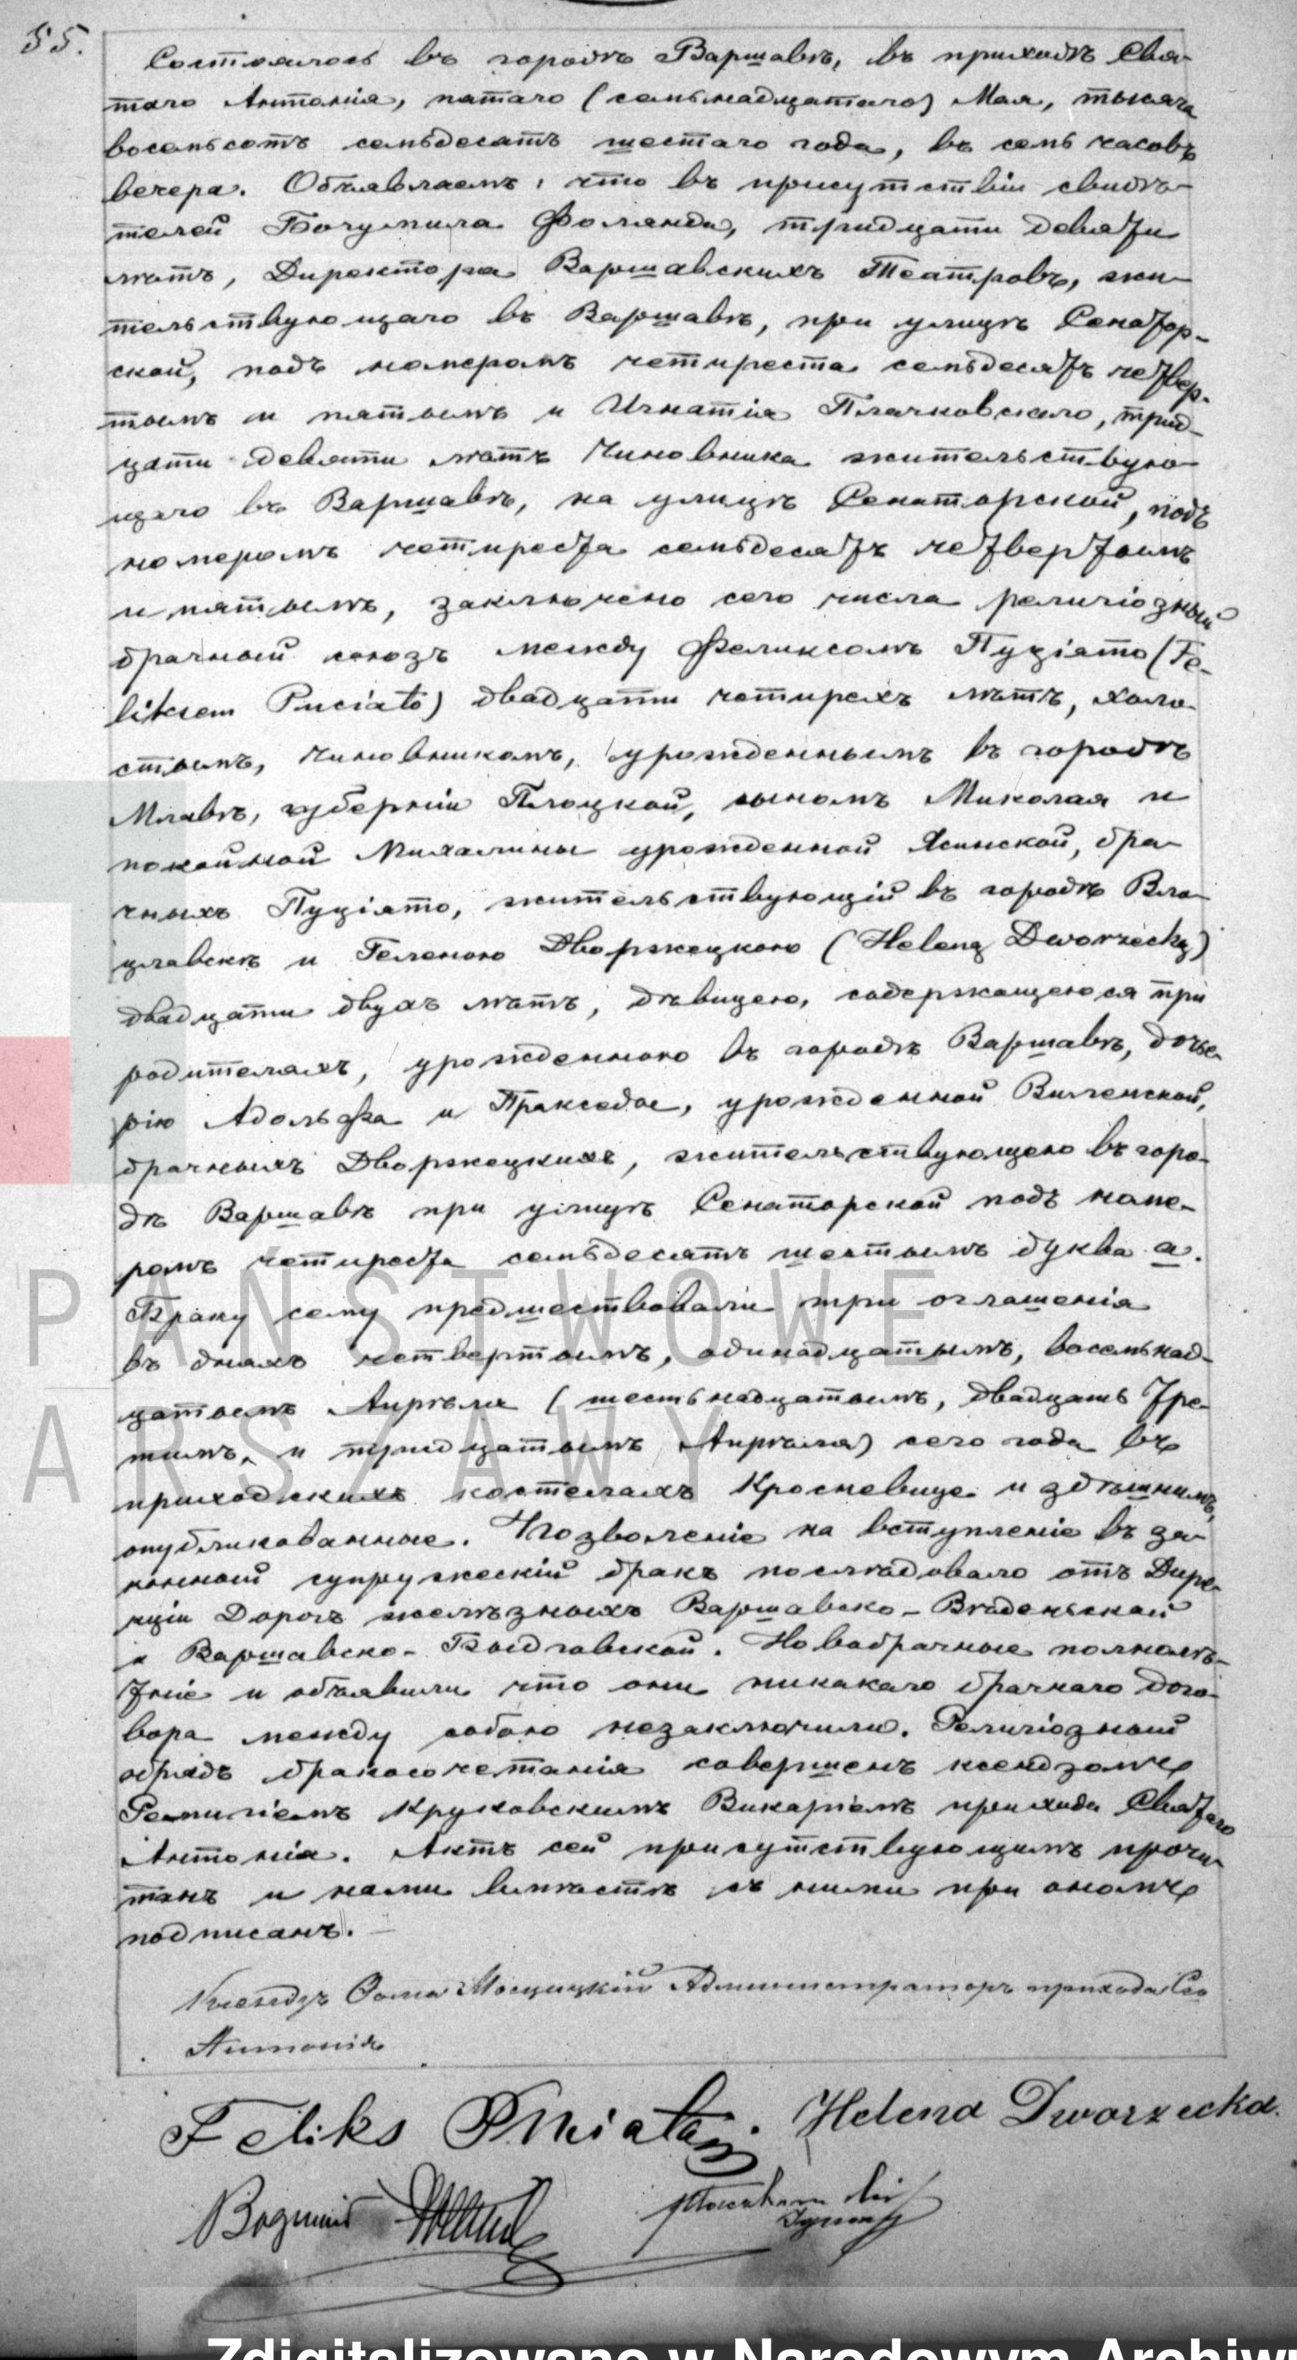 55.
Состоялось въ городѣ Варшавѣ, въ приходѣ Свя-
таго Антонія, пятаго (семьнадцатаго) Мая, тысяча
восемьсотъ семьдесятъ шестаго года, въ семь часовъ
вечера. Объявляемъ, что въ присутствіи свидѣ-
телей Богумила Фоланда, тридцати девяти
лѣтъ, Директора Варшавскихъ Театровъ, жи-
тельствующаго въ Варшавѣ, при улицѣ Сенатор-
ской, подъ номеромъ четыреста семьдесятъ четвер-
тымъ и пятымъ и Игнатія Плачковскаго, трид-
цати девяти лѣтъ Чиновника жительствую-
щаго въ Варшавѣ, на улицѣ Сенаторской, подъ
номеромъ четыреста семьдесятъ четвертымъ
и пятымъ, заключено сего числа религіозный
брачный союзъ между Феликсомъ Пуціято (Fe-
liksem Puciato) двадцати четырехъ лѣтъ, холо-
стымъ, Чиновникомъ, урожденнымъ въ городѣ
Млавѣ, губерніи Плоцкой, сыномъ Миколая и
покойной Михалины урожденной Ясинской, бра-
чныхъ Пуціято, жительствующій въ городѣ Вло-
цлавскѣ и Геленою Дворжецкою (Heleną Dworzecką)
двадцати двухъ лѣтъ, дѣвицею, содержащеюся при
родителяхъ, урожденною въ городѣ Варшавѣ, доче-
рію Адольфа и Пракседы, урожденной Виленской,
брачныхъ Дворжецкихъ, жительствующею въ горо-
дѣ Варшавѣ при улицѣ Сенаторской подъ номе-
ромъ четыреста семьдесятъ шестымъ буква а.
Браку сему предшествовали три оглашенія
въ дняхъ четвертымъ, одинадцатымъ, восемьнад-
цатымъ Апрѣля (шестьнадцатымъ, двадцать тре-
тимъ, и тридцатымъ Апрѣля) сего года въ
приходскихъ костелахъ Кросневице и здѣшнимъ,
опубликованные. Позволеніе на вступленіе въ за-
конный супружескій бракъ послѣдовало отъ Дире-
кціи Дорогъ желѣзныхъ Варшавско-Вѣденьской
и Варшавско-Быдговской. Новобрачные полнолѣ-
тніе и объявили что они никакаго брачнаго дого-
вора между собою незаключили. Религіозный
обрядъ бракосочетанія совершенъ ксендзомъ
Ремигіемъ Круковскимъ Викаріемъ прихода Святаго
Антонія. Актъ сей присутствующимъ прочи-
танъ и нами вмѣстѣ съ ними при ономъ
подписанъ. —
Ксендзъ Ѳома Мосцицкій Администраторъ прихода Св
Антонія
Feliks Puciato. Helena Dworzecka.
Bogumił
PAŃSTWOWE
ARSZAWY
Zdigitalizowano w Narodowym Archiwu